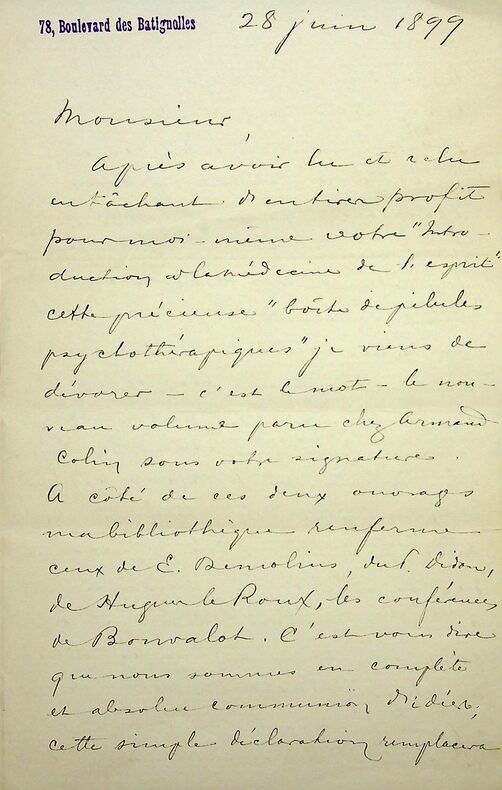 78, Boulevard des Batignolles
28 juin 1899
Monsieur,
Après avoir lu et relu
en tâchant d'en tirer profit
pour moi-même votre "Intro-
duction à la médecine de l'esprit"
cette précieuse "boîte de pilules
psychothérapiques" je viens de
dévorer – c'est le mot – le nou-
veau volume paru chez Armand
Colin sous votre signature.
A côté de ces deux ouvrages
ma bibliothèque renferme
ceux de E. Demolins, du P. Didon,
de Hugues le Roux, les conférences
de Bonvalot. C'est vous dire
que nous sommes en complète
et absolue communion d'idées;
cette simple déclaration remplacera